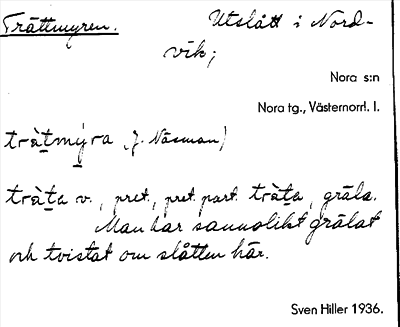 Trättmyren. Utslått i Nord-
vik;
Nora s:n
Nora tg., Västernorrl. l.
trätmýra (J. Näsman)
träta v., pret., pret. part. träta, gräla.
Man har sannolikt grälat
och tvistat om slåtten här.
Sven Hiller 1936.